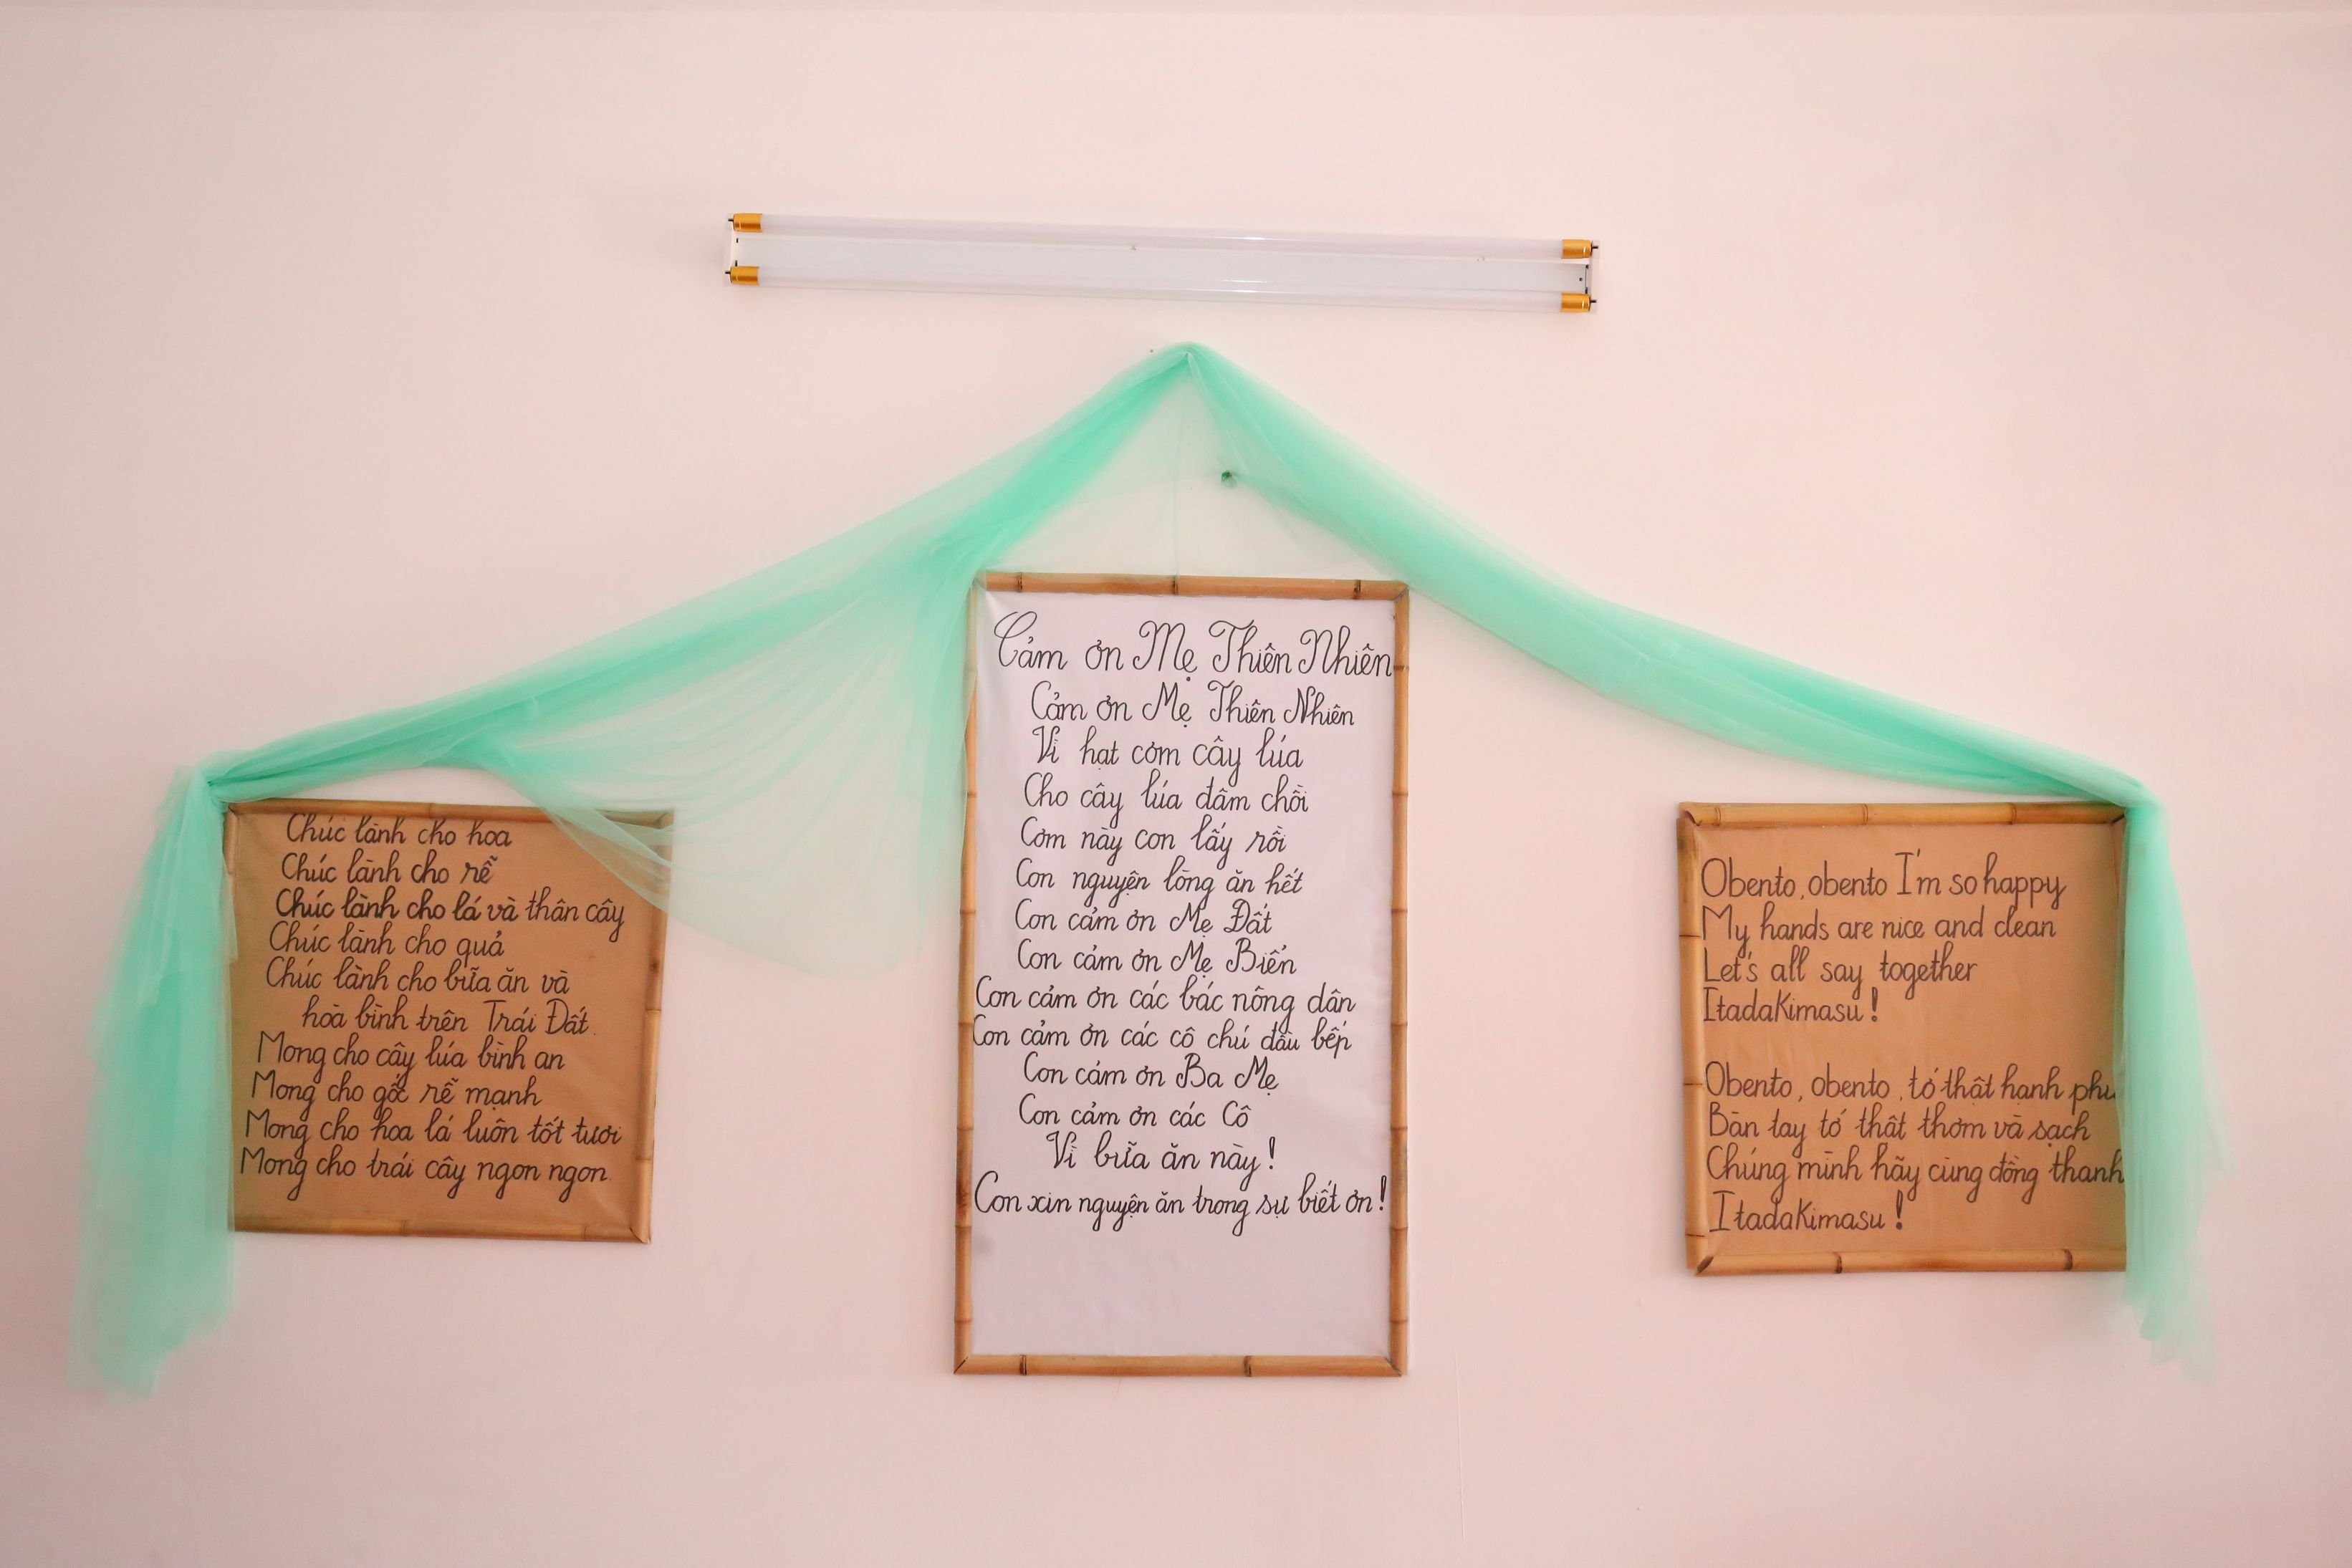 Chúc lành cho hoa
Chúc lành cho rễ
Chúc lành cho lá và thân cây
Chúc lành cho quả
Chúc lành cho bữa ăn và
hòa bình trên Trái Đất.
Mong cho cây lúa bình an
Mong cho gốc rễ mạnh
Mong cho hoa lá luôn tốt tươi
Mong cho trái cây ngon ngon.
Cảm ơn Mẹ Thiên Nhiên
Cảm ơn Mẹ Thiên Nhiên
Vì hạt cơm cây lúa
Cho cây lúa đâm chồi
Cơm này con lấy rồi
Con nguyện lòng ăn hết
Con cảm ơn Mẹ Đất
Con cảm ơn Mẹ Biển
Con cảm ơn các bác nông dân
Con cảm ơn các cô chú đầu bếp
Con cảm ơn Ba Mẹ
Con cảm ơn các Cô
Vì bữa ăn này!
Con xin nguyện ăn trong sự biết ơn!
Obento, obento I'm so happy
My hands are nice and clean
Let's all say together
Itadakimasu!
Obento, obento, tớ thật hạnh
Bàn tay tớ thật thơm và sạch
Chúng mình hãy cùng đồng thanh
Itadakimasu!